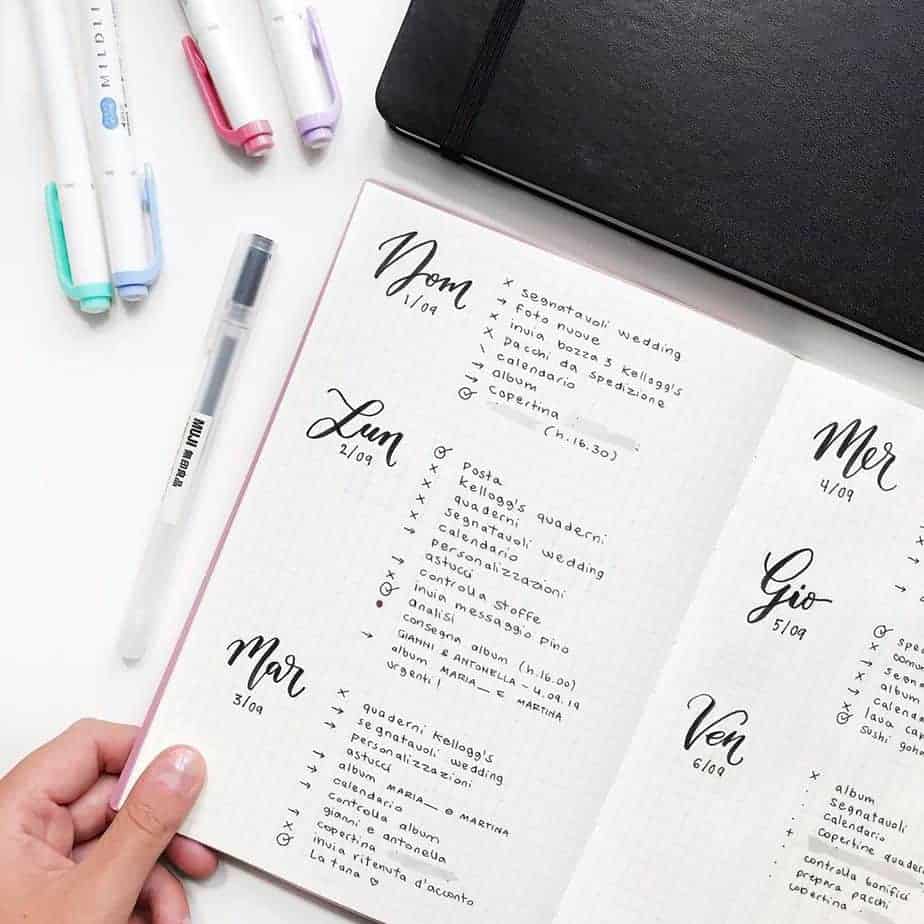 MILDLI
MUJI 無印良品
Dom
1/09
x segnatavoli wedding
→ foto nuove
x invia bozza 3 Kellogg's
x pacchi da spedizione
\ calendario
→ album
→ copertina
(h.16.30)
Lun
2/09
posta
x Kellogg's quaderni
x quaderni
x segnatavoli wedding
x calendario
→ personalizzazioni
astucci
→ controlla stoffe
x invia messaggio Pino
analisi
• consegna album (h.16.00)
GIANNI & ANTONELLA - 4.09.19
→ album MARIA__ e MARTINA
urgenti!
Mar
3/09
x quaderni Kellogg's
→ segnatavoli wedding
→ personalizzazioni
astucci
→ album MARIA__ e MARTINA
→ calendario
controlla album
gianni e antonella
→ copertina
x invia ritenuta d'acconto
La tana ♡
Mer
4/09
Gio
5/09
x
→ segna
x album
→ calenda
x lava cap
sushi goha
Ven
6/09
x album
· segnatavoli
· calendario
+ copertine quader
· controlla bonifici
· prepara pacchi
· copertina